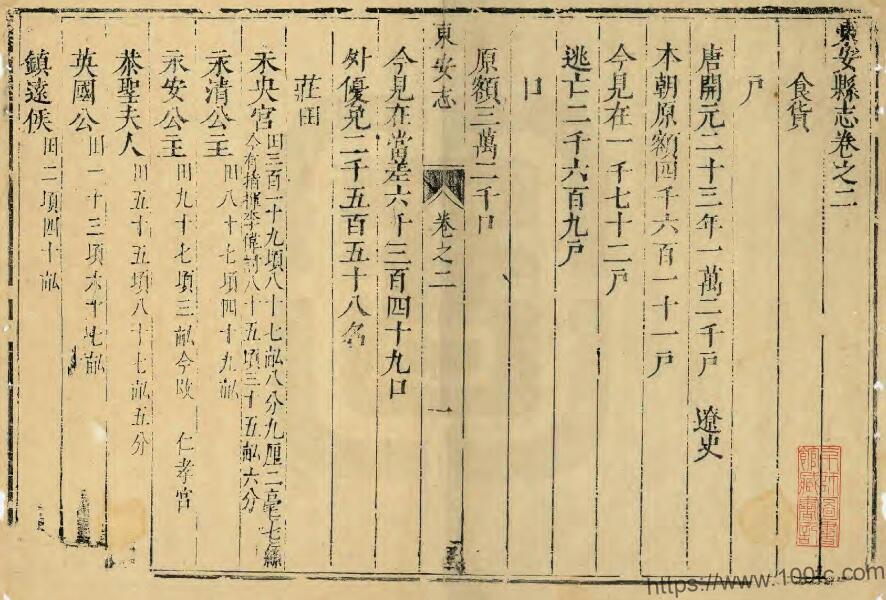 東安縣志卷之二
食貨
戶
唐開元二十三年一萬二千戶 遼史
本朝原額四千六百一十一戶
今見在一千七十二戶
逃亡二千六百九戶
口
原額三萬二千口
東安志 卷之二 一
今見在當差六千三百四十九口
外優免二千五百五十八名
莊田
未央宮 田三百一十九頃八十七畝八分九厘二毫七絲
今有指揮李偉討八十五頃三十五畝六分
永清公主 田八十七頃四十九畝
永安公主 田九十七頃三畝今改 仁孝宮
恭聖夫人 田五十五頃八十七畝五分
英國公 田一十三頃六十七畝
鎮遠侯 田二頃四十畝
京師圖書
館藏書記
https://www.100tc.com